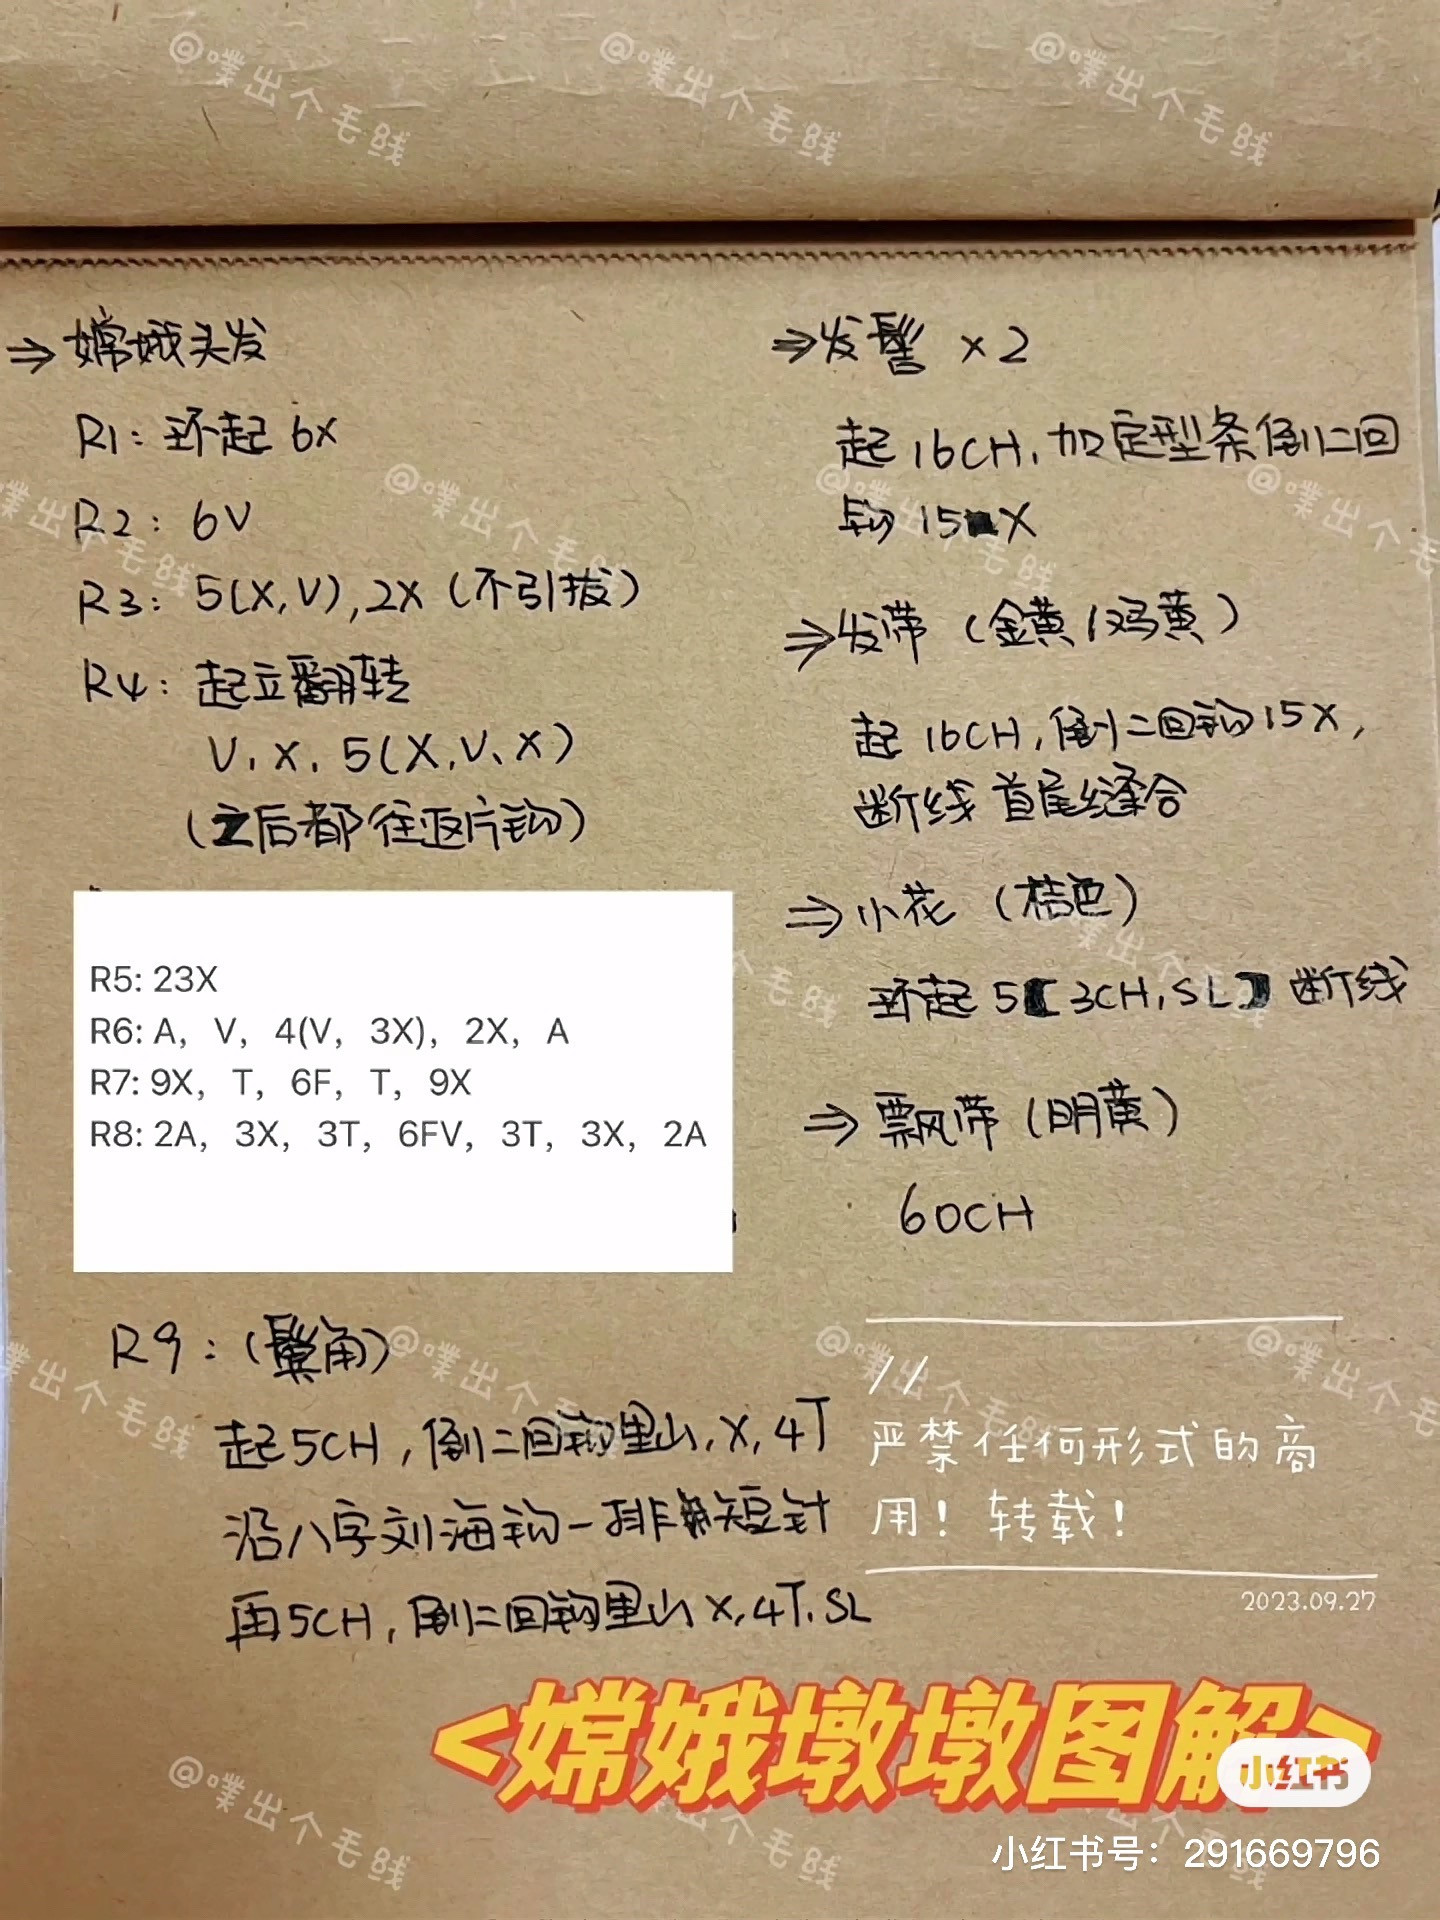 @噗出个毛线
@噗出个毛线
@噗出个毛线
⇒嫦娥头发
R1: 环起 6X
R2: 6V
R3: 5(X,V),2X (不引拔)
R4: 起立翻转
V、X、5(X、V、X)
(之后都往返片钩)
R5: 23X
R6: A, V, 4(V, 3X), 2X, A
R7: 9X, T, 6F, T, 9X
R8: 2A, 3X, 3T, 6FV, 3T, 3X, 2A
R9: (鬓角)
起5CH, 倒二回钩里山, X, 4T
沿八字刘海钩一排短针
再5CH, 倒二回钩里山 X, 4T, SL
⇒发髻 ×2
起 16CH, 加定型条倒二回
钩 15X
⇒发带 (金黄/鸡黄)
起 16CH, 倒二回钩15X,
断线 首尾缝合
⇒小花 (桔色)
环起 5【3CH, SL】断线
⇒飘带 (明黄)
60CH
//
严禁任何形式的商
用! 转载!
2023.09.27
<嫦娥墩墩图解>
小红书
小红书号: 291669796